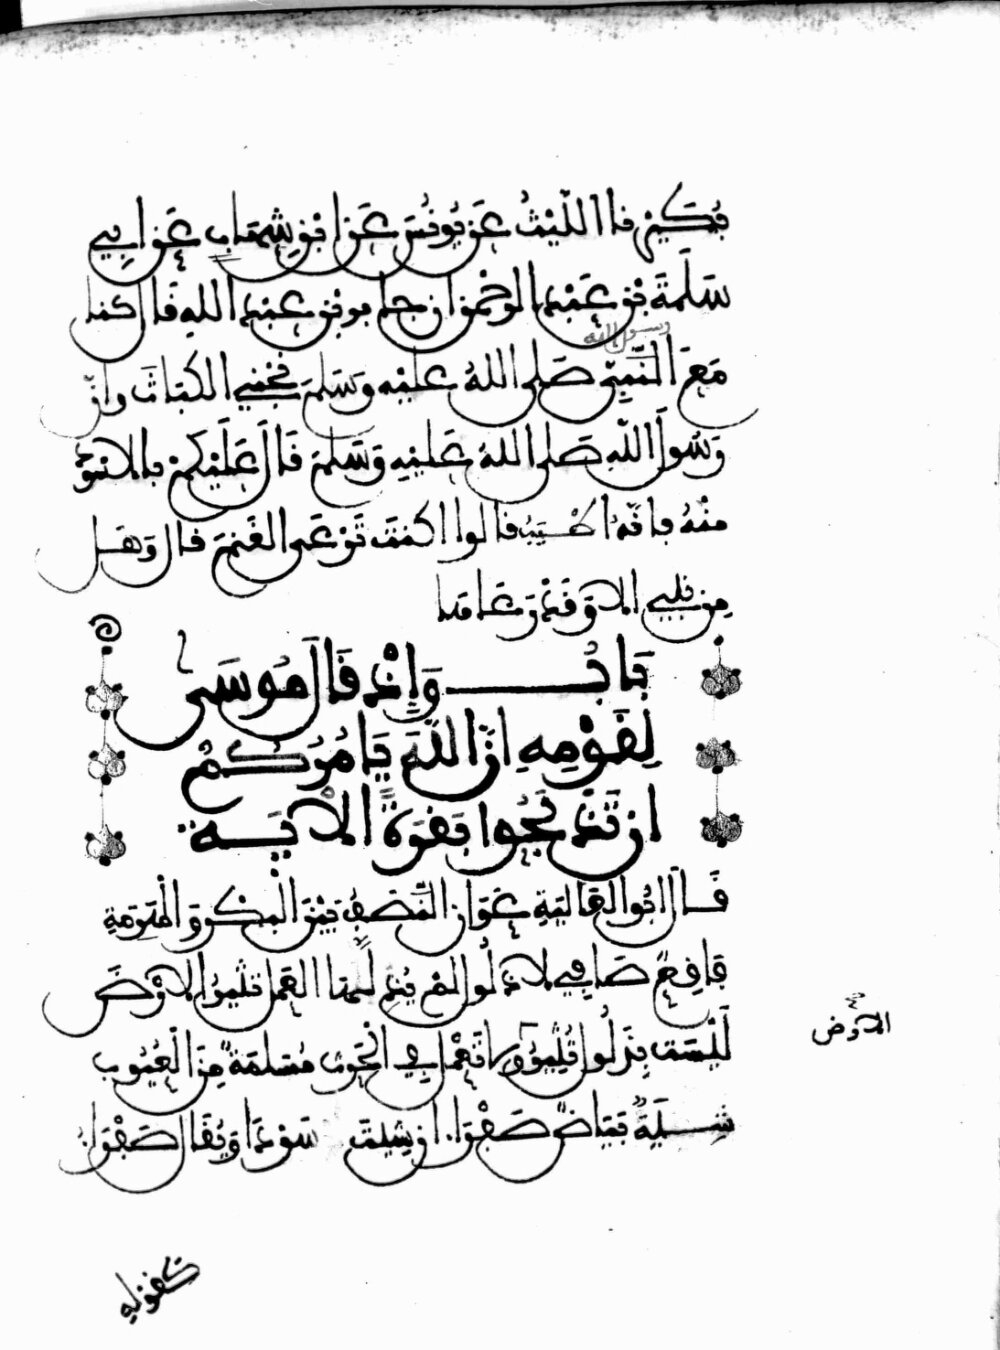 بُكَيْرٍ نا اللَّيْثُ عَنْ يُونُسَ عَنِ ابْنِ شِهَابٍ عَنْ ابِي
سَلَمَةَ بْنِ عَبْدِ الرحْمنِ ان جابر بْنَ عبْدِ اللهِ قَال كنا
رسول الله
مَعَ النَّبِيِّ صَلى اللهُ عليْهِ وَسَلمَ نَجْنِي الكبَاثَ وانَّ
رَسُولَ اللَّهِ صَلى اللهُ عَليْهِ وَسَلمَ قَالَ عَلَيْكُمْ بالاسْودِ
مِنْهُ فانَّهُ اطْيَبُهُ قالوا اكنتَ تَرْعَى الغَنَمَ قال وَهَل
مِن نبيٍ الا وَقَدْ رَعَاهَا
بَابُ وَإِذْ قَالَ مُوسَى
لِقَوْمِهِ انَّ اللَّهَ يَامُرُكُمُ
ان تَذْبَحُوا بَقَرَةً الْايَة
قَالَ ابُوا العَالِيَةِ عَوَان النَّصَفُ بَيْنَ الْبِكْرِ وَالْهَرِمَةِ
فَاقِعٌ صَافٍ لا ذَلُولٌ لمْ يُذِلَّهَا العَمَل تُثِيرُ الارْضَ
الارض
لَيْسَتْ بِذَلُولٍ تُثِيرُ الارْضَ وَلا تَعْمَل فِي الْحَرْثِ مُسَلمَةٌ مِنَ الْعُيُوبِ
شِيَةَ بَيَاضٌ صَفْرَا ان شِئتَ سَوْدَا وَيُقَال صَفْرَا
كقوله